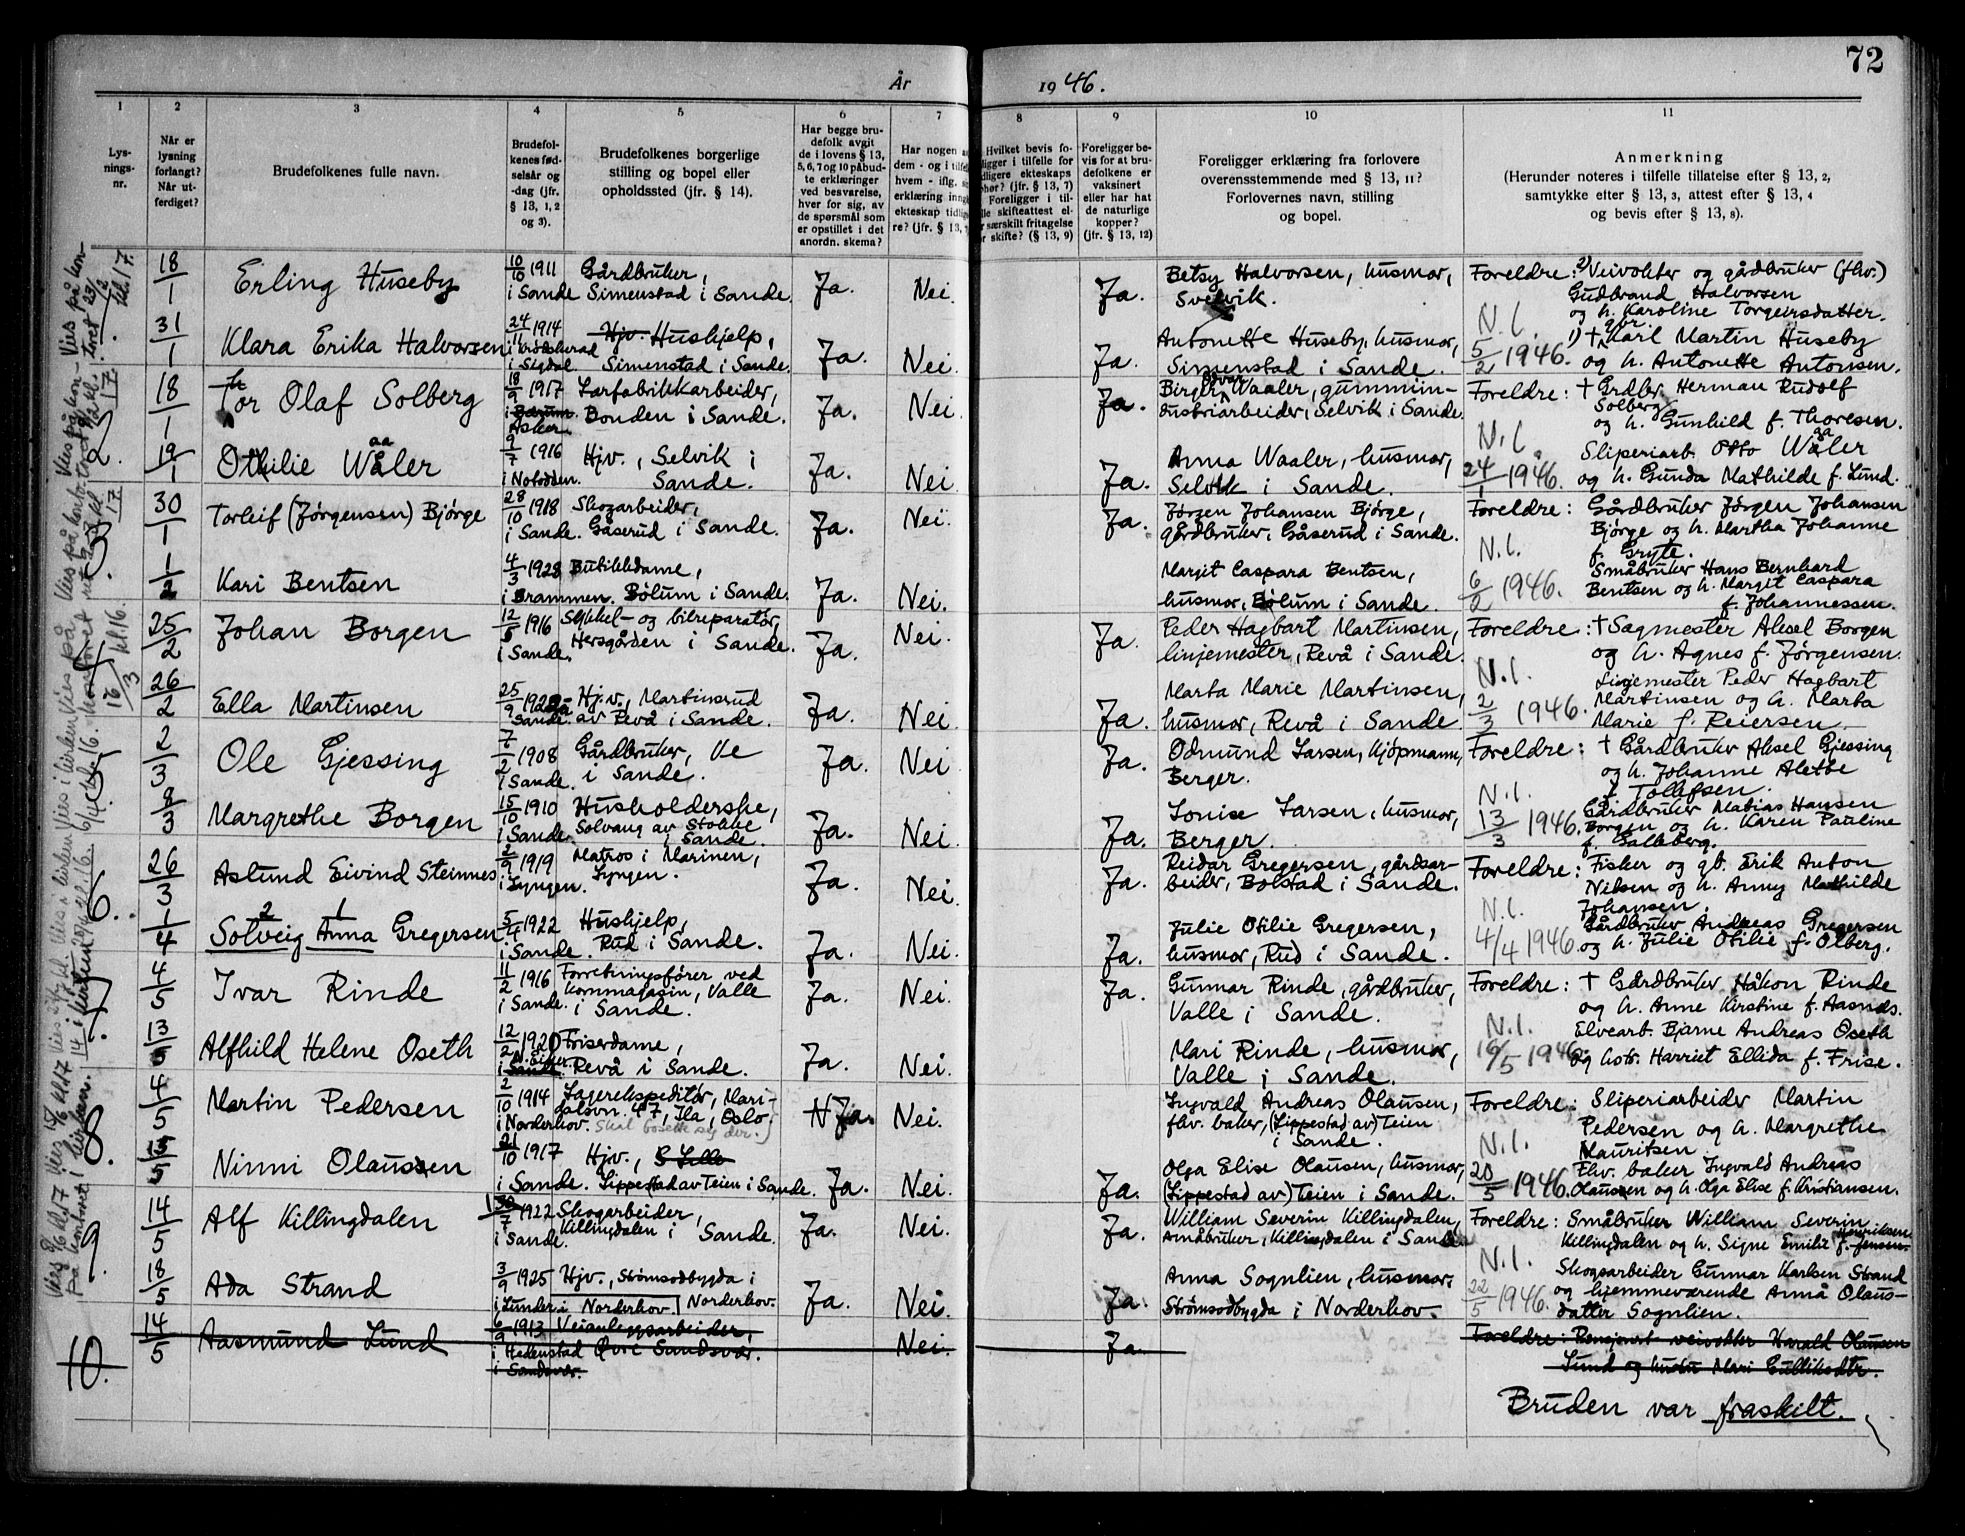 72
År 1946.
1 2 3 4 5 6 7 8 9 10 11
Lys-
nings-
nr.
Når er
lysning
forlangt?
Når ut-
ferdiget?
Brudefolkenes fulle navn.
Brudefol-
kenes fød-
selsår og
-dag (jfr.
§ 13, 1, 2
og 3).
Brudefolkenes borgerlige
stilling og bopel eller
opholdssted (jfr. § 14).
Har begge bru-
defolk avgit
de i lovens § 13,
5, 6, 7 og 10 påbud-
te erklæringer
ved besvarelse,
hver for sig, av
de spørsmål som
er opstillet i det
anordn. skema?
Har nogen a
dem - og i tilfelle
hvem - iflg.
erklæring inng
ekteskap tidlig
re? (jfr. § 13, 7
Hvilket bevis fo-
ligger i tilfelle for
dligere ekteskaps
hør? (jfr. § 13, 7)
Foreligger i til-
lle skifteattest el-
r særskilt fritagelse
r skifte? (§ 13, 9)
Foreligger be-
vis for at bru-
defolkene er
vaksinert
eller har hat
de naturlige
kopper?
(jfr. § 13, 12)
Foreligger erklæring fra forlovere
overensstemmende med § 13, 11?
Forlovernes navn, stilling
og bopel.
Anmerkning
(Herunder noteres i tilfelle tillatelse efter § 13, 2,
samtykke efter § 13, 3, attest efter § 13, 4
og bevis efter § 13, 8).
1. 18/1 Erling Huseby 10/10 1911 i Sande Gårdbruker, Simenstad i Sande. Ja. Nei. Ja. Betsy Halvorsen, husmor, Svelvik. Foreldre: 2) Veivokter og gårdbruker (fhv.)
Gudbrand Halvorsen
og h. Karoline Torgeirsdatter.
31/1 Klara Erika Halvorsen 24/11 1914 i Krødsherad i Sigdal. Hjv. Hushjelp, Simenstad i Sande. Ja. Nei. Ja. Antonette Huseby, husmor, Simenstad i Sande. N.l. 5/2 1946. 1) † gbr. Karl Martin Huseby
og h. Antonette Antonsen.
2. 18/1 Thor Olaf Solberg 18/9 1917 i Bærum. Asker Lærfabrikkarbeider, Bonden i Sande. Ja. Nei. Ja. Birger Waaler, gummiin-
dustriarbeider, Selvik i Sande. Foreldre: † Grdbr. Herman Rudolf
Solberg
og h. Gunhild f. Thoresen.
19/1 Othilie Waaler 9/7 1916 i Notodden. Hjv., Selvik i Sande. Ja. Nei. Ja. Anna Waaler, husmor, Selvik i Sande. N.l. 24/1 1946. Sliperiarb. Otto Waaler
og h. Gunda Mathilde f. Lund.
3. 30/1 Torleif (Jørgensen) Bjørge 28/10 1918 i Sande. Skogarbeider, Gåserud i Sande. Ja. Nei. Ja. Jørgen Johansen Bjørge, gårdbruker, Gåserud i Sande. Foreldre: Gårdbruker Jørgen Johansen
Bjørge og h. Martha Johanne
f. Gryte.
1/2 Kari Bentsen 4/3 1928 i Drammen. Butikkdame, Bølum i Sande. Ja. Nei. Margit Caspara Bentsen, husmor, Bølum i Sande. N.l. 6/2 1946. Småbruker Hans Bernhard
Bentsen og h. Margit Caspara
f. Johannessen.
4. 25/2 Johan Borgen 12/5 1916 i Sande. Sykkel- og bilreparatør, Hersgården i Sande. Ja. Nei. Ja. Peder Hagbart Martinsen, linjemester, Revå i Sande. Foreldre: † Sagmester Aksel Borgen
og h. Agnes f. Jørgensen.
26/2 Ella Martinsen 25/9 Sande. Hjv., Martinsrud av Revå i Sande. Ja. Nei. Ja. Marta Marie Martinsen, husmor, Revå i Sande. N.l. 2/3 1946. Linjemester Peder Hagbart
Martinsen og h. Marta
Marie f. Reiersen
5. 2/3 Ole Gjessing 7/2 1908 i Sande. Gårdbruker, Ve i Sande. Ja. Nei Ja. Odmund Larsen, kjøpmann, Berger. Foreldre: † Gårdbruker Aksel Gjessing
og h. Johanne Alethe
f. Tollefsen.
8/3 Margrethe Borgen 15/10 1910 i Sande. Husholderske, Solvang av Stokke i Sande. Ja. Nei. Ja. Louise Larsen, husmor, Berger. N.l. 13/3 1946. Gårdbruker Mathias Hansen
Borgen og h. Karen Pauline
f. Galleberg.
6. 26/3 Aslund Eivind Steinnes 2/9 1919 i Lyngen. Matros i Marinen, Lyngen. Ja. Nei. Ja. Reidar Gregersen, gårdsar-
beider, Bolstad i Sande. Foreldre: Fisker og gb. Erik Anton
Nilsen og h. Anny Mathilde
Johansen.
1/4 Solveig Anna Gregersen 5/4 1922 i Sande. Hushjelp, Rud i Sande. Ja. Nei. Ja. Julie Otilie Gregersen, husmor, Rud i Sande. N.l. 4/4 1946. Gårdbruker Andreas Gregersen
og h. Julie Otilie f. Olberg.
7. 4/5 Ivar Rinde 11/2 1916 i Sande. Forretningsfører ved Kornmagasin, Valle i Sande. Ja. Nei. Ja. Gunnar Rinde, gårdbruker, Valle i Sande. Foreldre: † Gårdbruker Håkon Rinde
og h. Anne Kirstine f. Aasnds.
13/5 Alfhild Helene Oseth 12/2 1920 N. Eiker i Sande Friserdame, Revå i Sande. Ja. Nei. Mari Rinde, husmor, Valle i Sande. N.l. 16/5 1946. Elvearb. Bjarne Andreas Oseth
og hstr. Harriet Ellida f. Frise.
8. 4/5 Martin Pedersen 2/10 1914 i Norderhov. Lagerekspeditør, Mari-
dalsvn. 47, Ila, Oslo. Skal bosette seg der.) N Ja. Nei. Ingvald Andreas Olausen, fhv. baker, (Lippestad av) Teien i Sande. Foreldre: Sliperiarbeider Martin
Pedersen og h. Margrethe
Mauritsen.
15/5 Ninni Olaussen 21/10 1917 i Sande. Hjv., S Lille Lippestad av Teien i Sande. Ja. Nei. Ja. Olga Elise Olausen, husmor, (Lippestad av) Teien i Sande. N.l. 20/5 1946. Fhv. baker Ingvald Andreas
Olaussen og h. Olga Elise f. Kristiansen.
9. 14/5 Alf Killingdalen 30/7 1922 i Sande. Skogarbeider, Killingdalen i Sande. Ja. Nei. Ja. William Severin Killingdalen, småbruker, Killingdalen i Sande Foreldre: Småbruker William Severin
Killingdalen og h. Signe Emilie f. Jensen. Henriksen
18/5 Ada Strand 3/9 1925 i Lunder i Norderhov Hjv., Strømsodbygda i Norderhov. Ja. Nei. Ja. Anna Sognlien, husmor, Strømsodbygda i Norderhov. N.l. 22/5 1946. Skogsarbeider Gunnar Karlsen Strand
og hjemmeværende Anna Olaus-
datter Sognlien.
10. 14/5 Aasmund Lund 6/9 1913 i Hedenstad i Sandsvær. Veianleggsarbeider, Øvre Sandsvær. Nei. Ja. Foreldre: Pensjonert veivokter Harald Olaussen
Lund og hustru Mari Gulliksdtr.
Bruden var fraskilt.